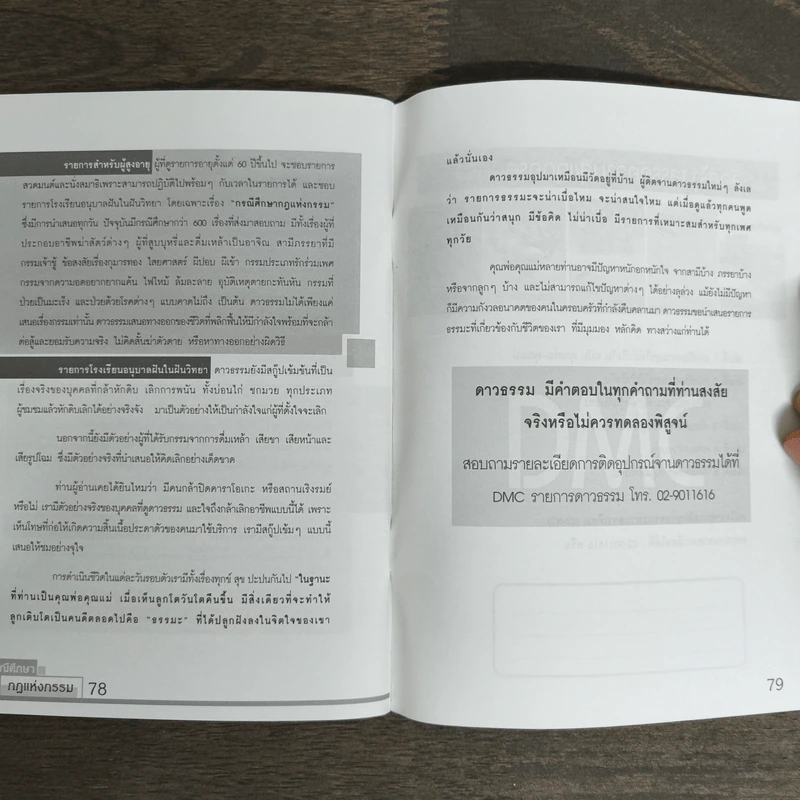 รายการสำหรับผู้สูงอายุ ผู้ที่ดูรายการอายุตั้งแต่ 60 ปีขึ้นไป จะชอบรายการ
สวดมนต์และนั่งสมาธิเพราะสามารถปฏิบัติไปพร้อมๆ กับเวลาในรายการได้ และชอบ
รายการโรงเรียนอนุบาลฝันในฝันวิทยา โดยเฉพาะเรื่อง "กรณีศึกษากฎแห่งกรรม"
ซึ่งมีการนำเสนอทุกวัน ปัจจุบันมีกรณีศึกษากว่า 600 เรื่องที่ส่งมาสอบถาม มีทั้งเรื่องผู้ที่
ประกอบอาชีพฆ่าสัตว์ต่างๆ ผู้ที่สูบบุหรี่และดื่มเหล้าเป็นอาจิณ สามีภรรยาที่มี
กรรมเจ้าชู้ ข้อสงสัยเรื่องกุมารทอง ไสยศาสตร์ ผีปอบ ผีเข้า กรรมประเภทรักร่วมเพศ
กรรมจากความอดอยากยากแค้น ไฟไหม้ ล้มละลาย อุบัติเหตุตายกะทันหัน กรรมที่
ป่วยเป็นมะเร็ง และป่วยด้วยโรคต่างๆ แบบคาดไม่ถึง เป็นต้น ดาวธรรมไม่ได้เพียงแค่
เสนอเรื่องกรรมเท่านั้น ดาวธรรมเสนอทางออกของชีวิตที่พลิกฟื้นให้มีกำลังใจพร้อมที่จะกล้า
ต่อสู้และยอมรับความจริง ไม่คิดสั้นฆ่าตัวตาย หรือหาทางออกอย่างผิดวิธี
รายการโรงเรียนอนุบาลฝันในฝันวิทยา ดาวธรรมยังมีสกู๊ปเข้มข้นที่เป็น
เรื่องจริงของบุคคลที่กล้าหักดิบ เลิกการพนัน ทั้งบ่อนไก่ ชกมวย ทุกประเภท
ผู้ชมชมแล้วหักดิบเลิกได้อย่างจริงจัง มาเป็นตัวอย่างให้เป็นกำลังใจแก่ผู้ที่ตั้งใจจะเลิก
นอกจากนี้ยังมีตัวอย่างผู้ที่ได้รับกรรมจากการดื่มเหล้า เสียขา เสียหน้าและ
เสียรูปโฉม ซึ่งมีตัวอย่างจริงที่นำเสนอให้คิดเลิกอย่างเด็ดขาด
ท่านผู้อ่านเคยได้ยินไหมว่า มีคนกล้าปิดคาราโอเกะ หรือสถานเริงรมย์
หรือไม่ เรามีตัวอย่างจริงของบุคคลที่ดูดาวธรรม และใจถึงกล้าเลิกอาชีพแบบนี้ได้ เพราะ
เห็นโทษที่ก่อให้เกิดความสิ้นเนื้อประดาตัวของคนมาใช้บริการ เรามีสกู๊ปเข้มๆ แบบนี้
เสนอให้ชมอย่างจุใจ
การดำเนินชีวิตในแต่ละวันรอบตัวเรามีทั้งเรื่องทุกข์ สุข ปะปนกันไป "ในฐานะ
ที่ท่านเป็นคุณพ่อคุณแม่ เมื่อเห็นลูกโตวันโตคืนขึ้น มีสิ่งเดียวที่จะทำให้
ลูกเติบโตเป็นคนดีตลอดไปคือ "ธรรมะ" ที่ได้ปลูกฝังลงในจิตใจของเขา
ณีศึกษา
กฎแห่งกรรม 78
แล้วนั่นเอง
ดาวธรรมอุปมาเหมือนมีวัดอยู่ที่บ้าน ผู้ติดจานดาวธรรมใหม่ๆ ลังเล
ว่า รายการธรรมะจะน่าเบื่อไหม จะน่าสนใจไหม แต่เมื่อดูแล้วทุกคนพูด
เหมือนกันว่าสนุก มีข้อคิด ไม่น่าเบื่อ มีรายการที่เหมาะสมสำหรับทุกเพศ
ทุกวัย
คุณพ่อคุณแม่หลายท่านอาจมีปัญหาหนักอกหนักใจ จากสามีบ้าง ภรรยาบ้าง
หรือจากลูกๆ บ้าง และไม่สามารถแก้ไขปัญหาต่างๆ ได้อย่างลุล่วง แม้ยังไม่มีปัญหา
ก็มีความกังวลอนาคตของคนในครอบครัวที่กำลังคืบคลานมา ดาวธรรมขอนำเสนอรายการ
ธรรมะที่เกี่ยวข้องกับชีวิตของเรา ที่มีมุมมอง หลักคิด ทางสว่างแก่ท่านได้
ดาวธรรม มีคำตอบในทุกคำถามที่ท่านสงสัย
จริงหรือไม่ควรทดลองพิสูจน์
สอบถามรายละเอียดการติดอุปกรณ์จานดาวธรรมได้ที่
DMC รายการดาวธรรม โทร. 02-9011616
DMC
79